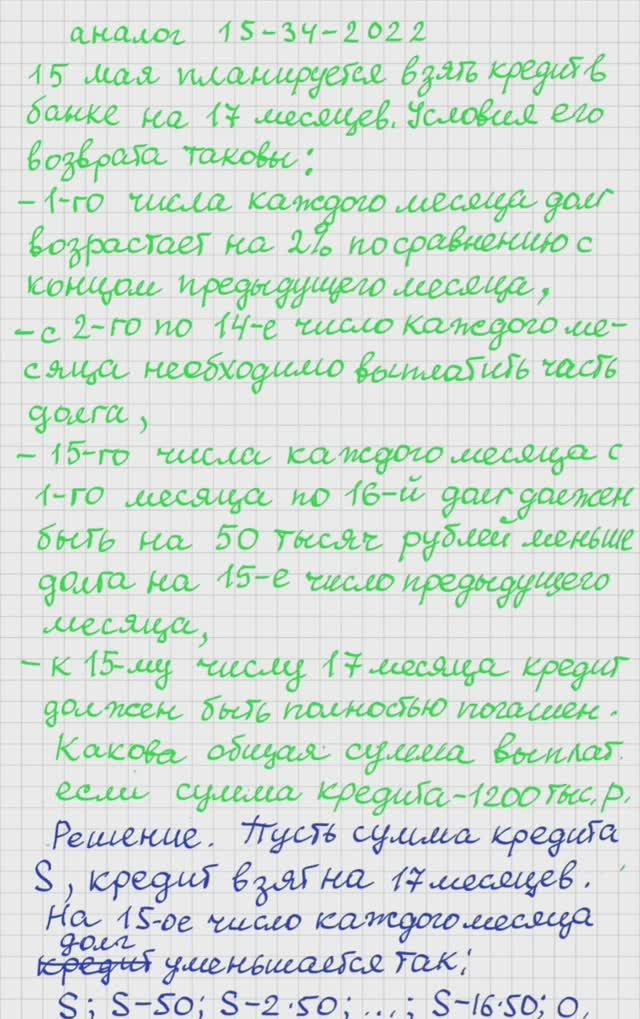 аналог 15-34-2022
15 мая планируется взять кредит в
банке на 17 месяцев. Условия его
возврата таковы:
- 1-го числа каждого месяца долг
возрастает на 2% по сравнению с
концом предыдущего месяца,
- с 2-го по 14-е число каждого ме-
сяца необходимо выплатить часть
долга,
- 15-го числа каждого месяца с
1-го месяца по 16-й долг должен
быть на 50 тысяч рублей меньше
долга на 15-е число предыдущего
месяца,
- к 15-му числу 17 месяца кредит
должен быть полностью погашен.
Какова общая сумма выплат
если сумма кредита-1200 тыс. р.
Решение. Пусть сумма кредита
S, кредит взят на 17 месяцев.
На 15-ое число каждого месяца
долг
кредит уменьшается так:
S; S-50; S-2·50; ...; S-16·50; 0.